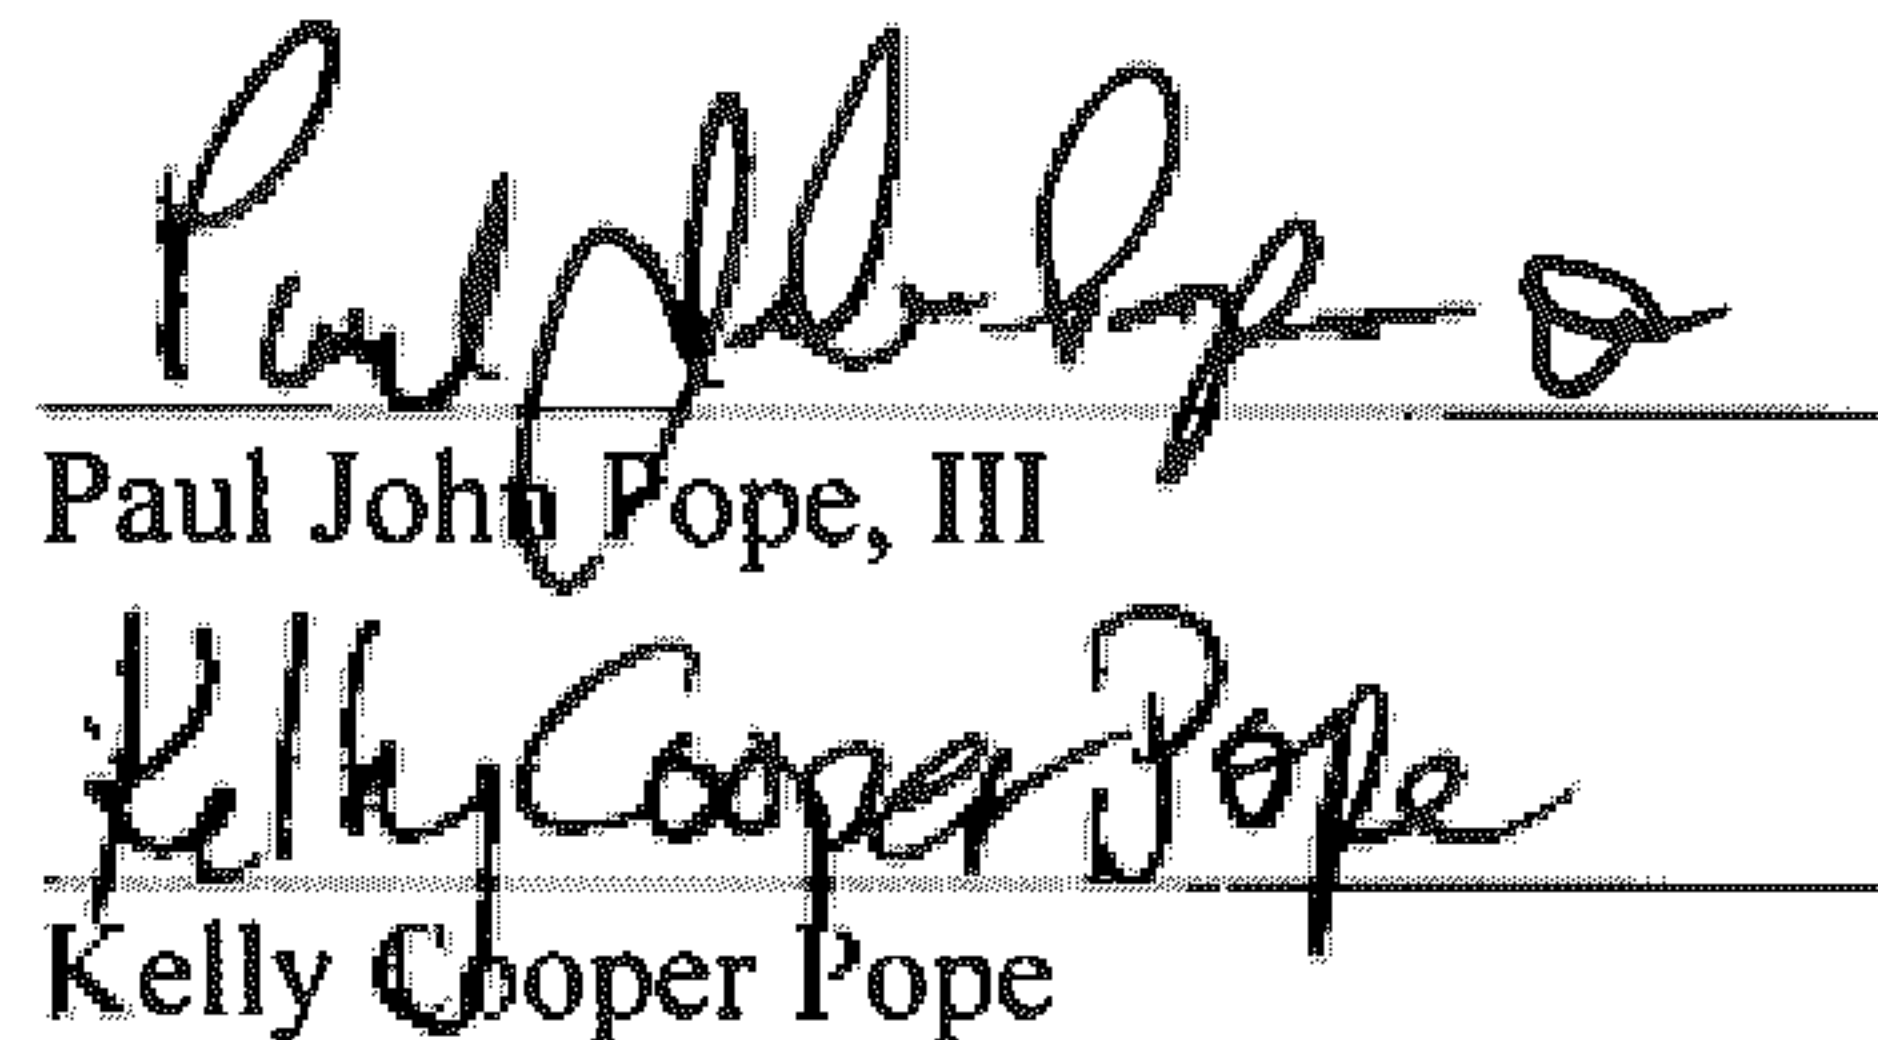 Paul John Pope
Paul John Pope, III
Kelly Cooper Pope
Kelly Cooper Pope